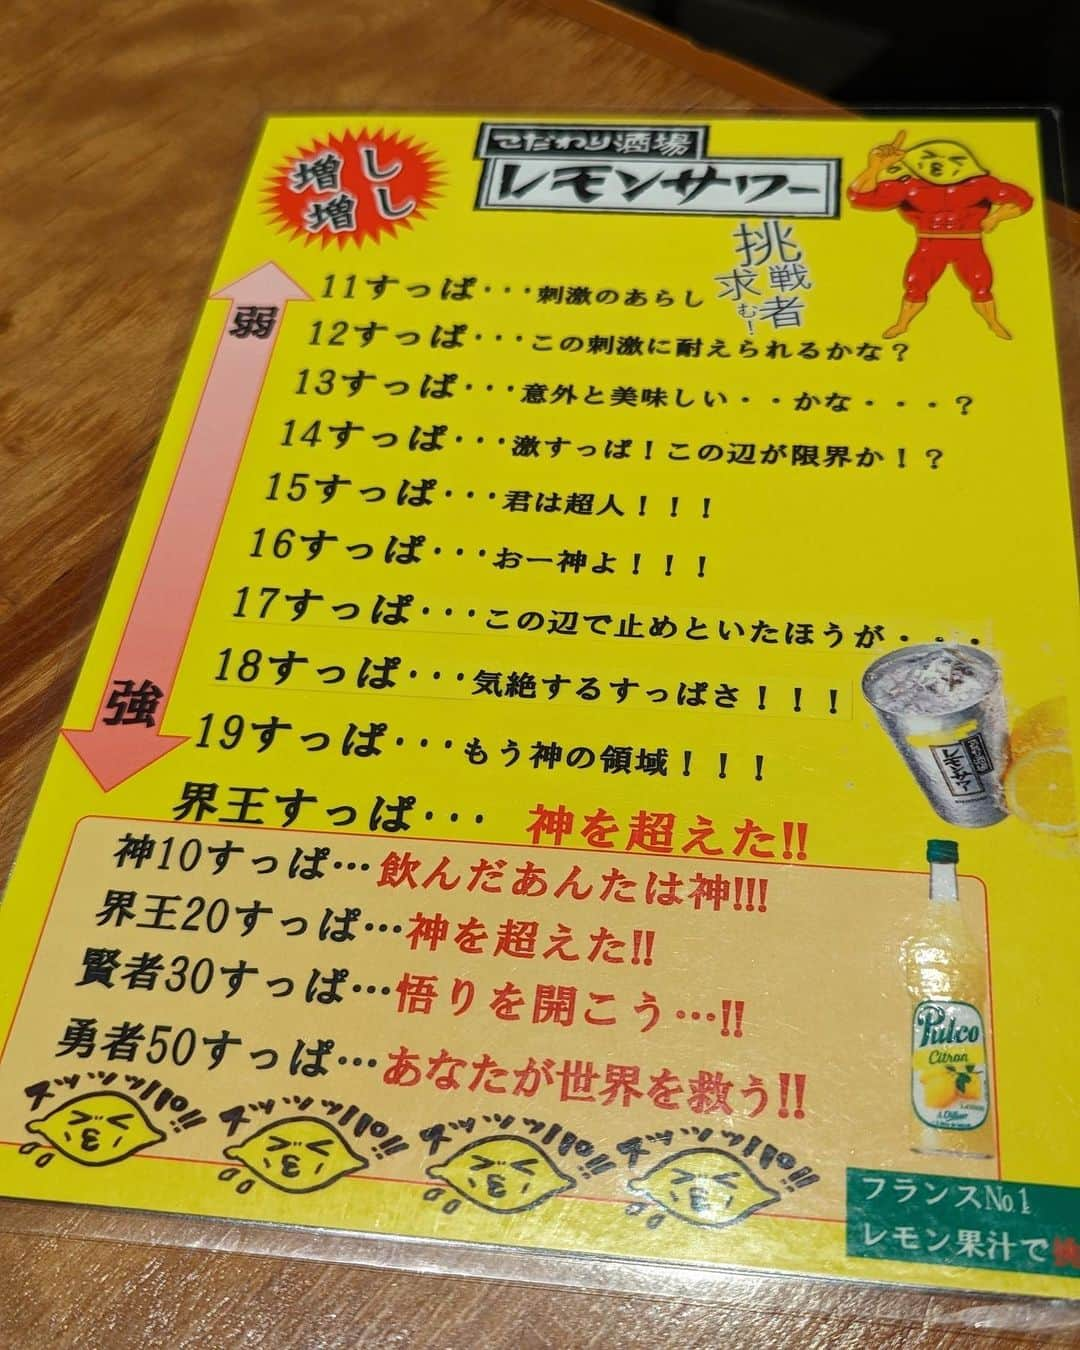 増し
増し
こだわり酒場
レモンサワー
挑戦者
求む!
弱
11すっぱ・・・刺激のあらし
12すっぱ・・・この刺激に耐えられるかな？
13すっぱ・・・意外と美味しい・・かな・・・？
14すっぱ・・・激すっぱ！この辺が限界か！？
15すっぱ・・・君は超人！！！
16すっぱ・・・おー神よ！！！
17すっぱ・・・この辺で止めといたほうが・・・
18すっぱ・・・気絶するすっぱさ！！！
19すっぱ・・・もう神の領域！！！
強
界王すっぱ・・・ 神を超えた!!
神10すっぱ…飲んだあんたは神!!!
界王20すっぱ…神を超えた!!
賢者30すっぱ…悟りを開こう…!!
勇者50すっぱ…あなたが世界を救う!!
こだわり酒場
レモンサワー
Pulco
Citron
ズッッッパパ!!
ズッッッパパ!!
ズッッッパパ!!
ズッッッパパ!!
フランスNo.1
レモン果汁で